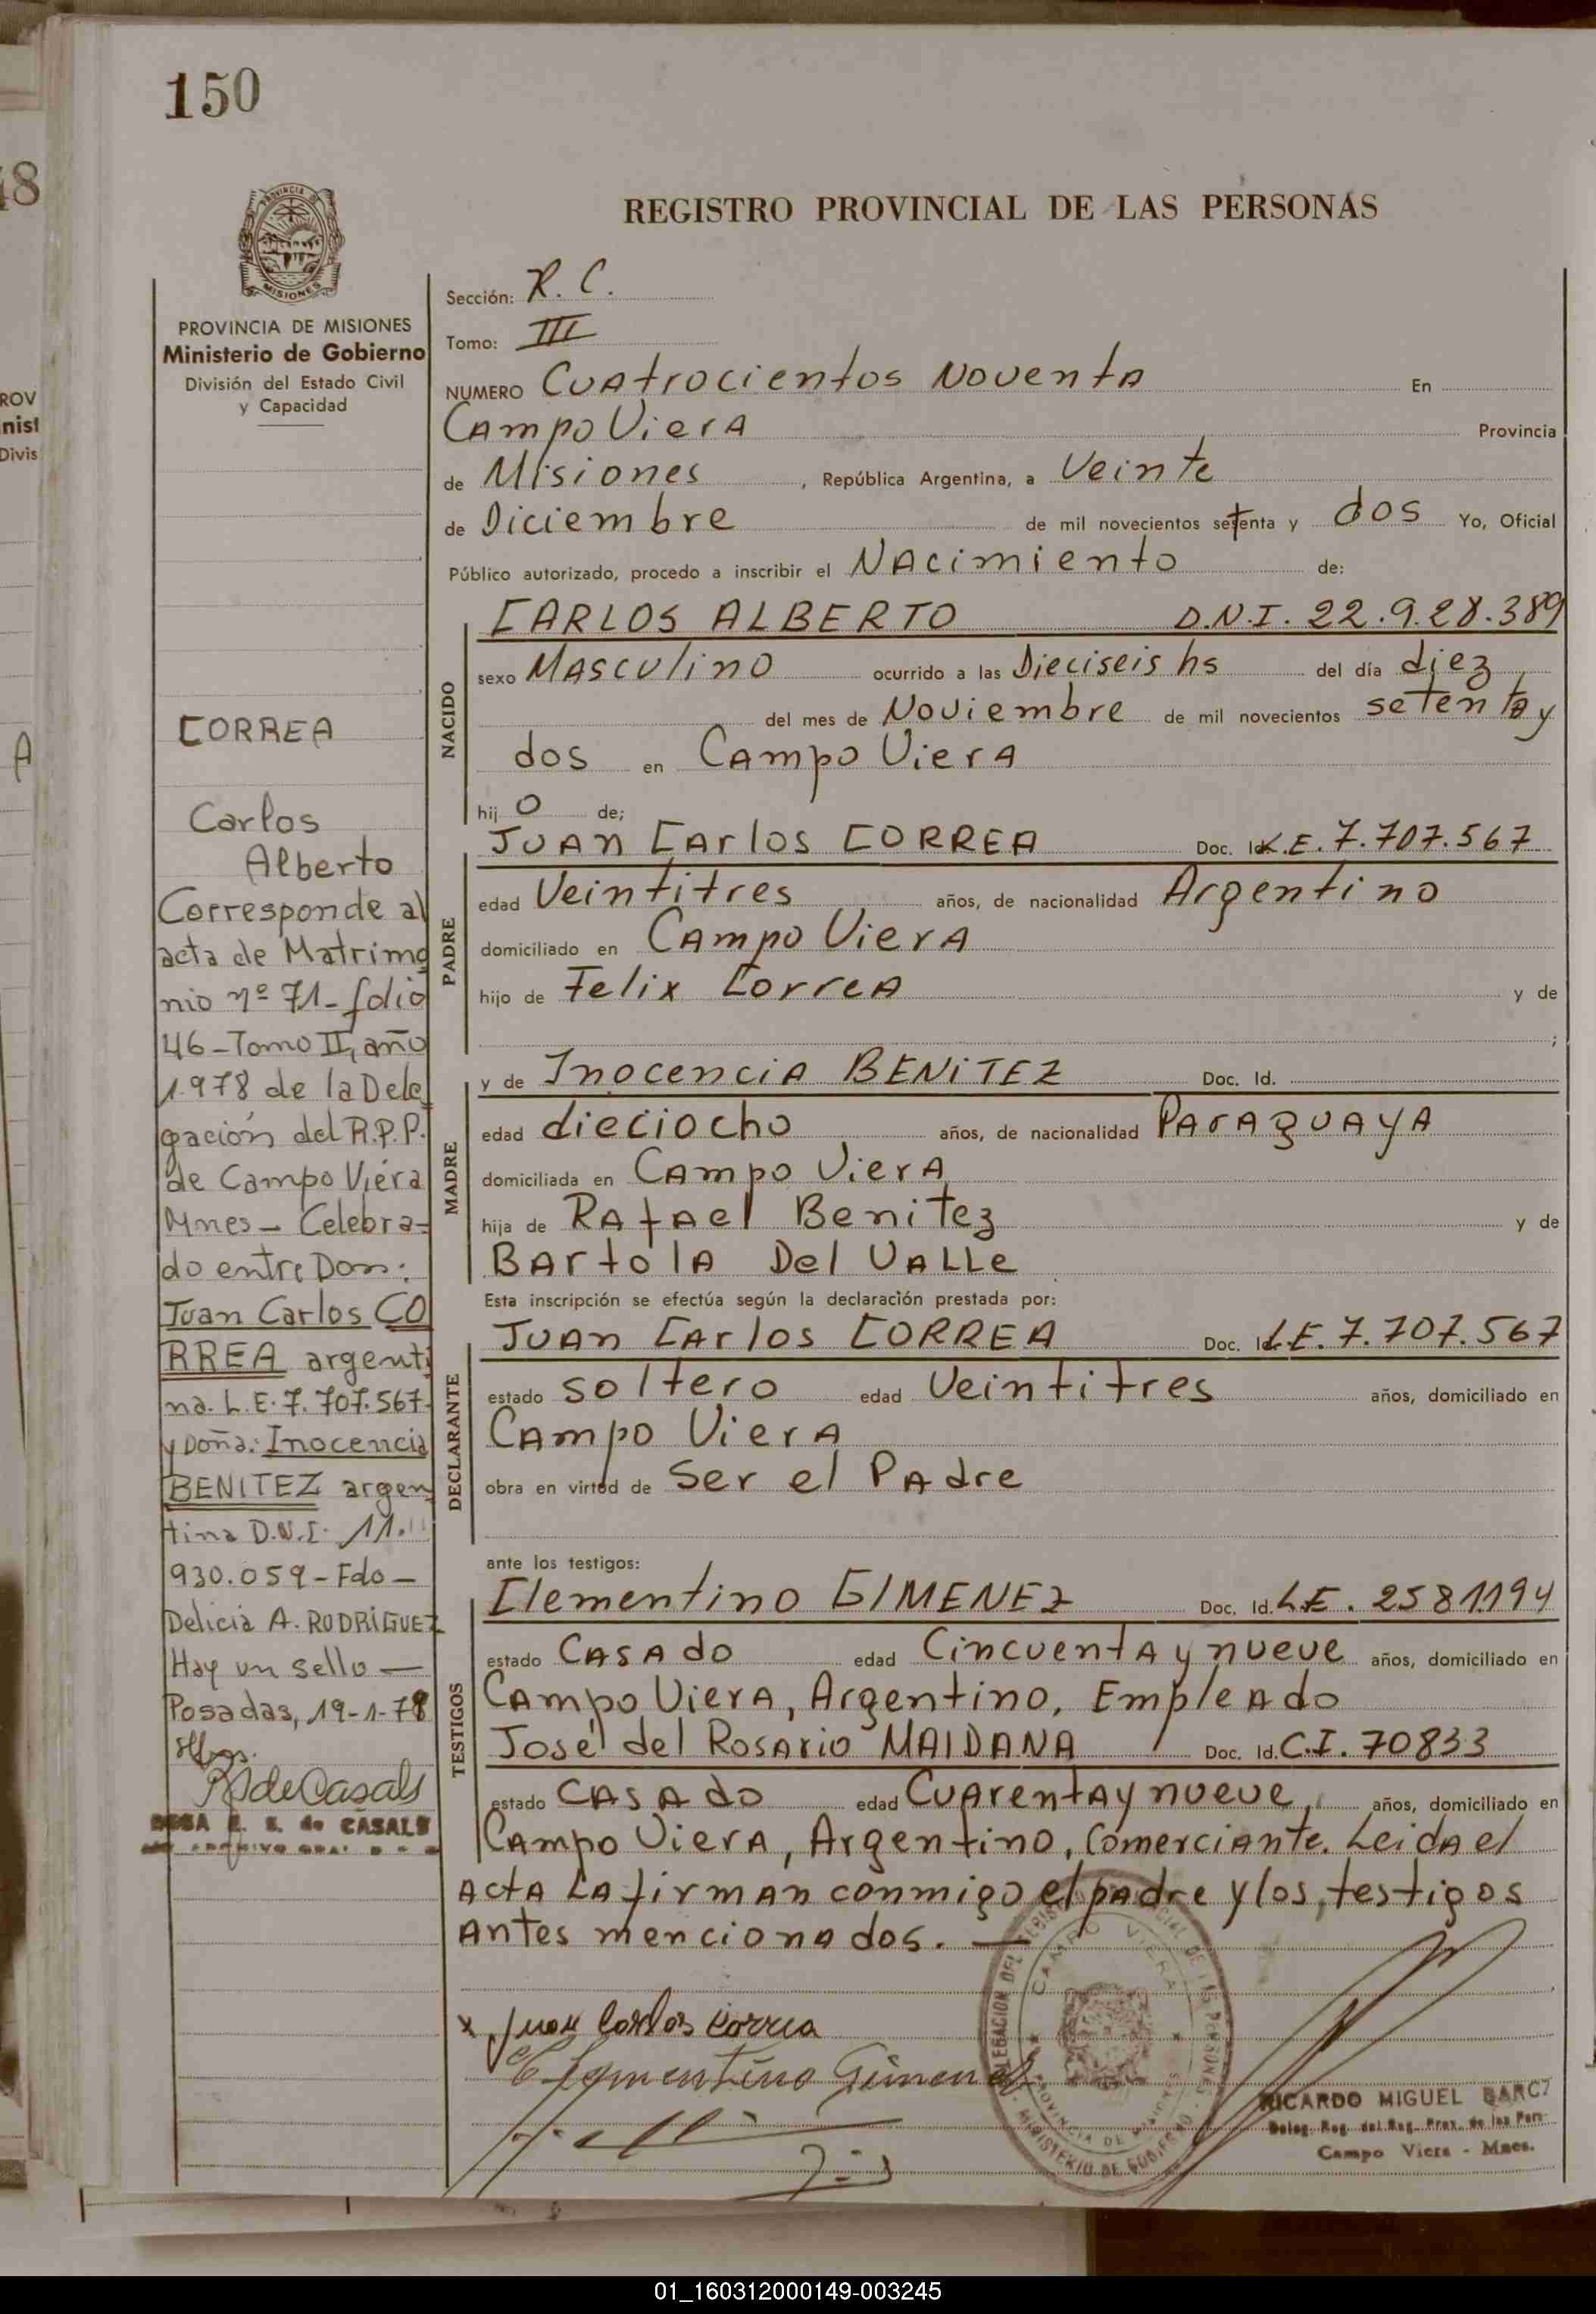 150
REGISTRO PROVINCIAL DE LAS PERSONAS
PROVINCIA DE MISIONES
Ministerio de Gobierno
División del Estado Civil
y Capacidad
CORREA
Carlos
Alberto
Corresponde al
acta de Matrimo
nio nº 71- folio
46-Tomo II, año
1.978 de la Dele
gación del R.P.P.
de Campo Viera
Mnes- Celebra-
do entre Don:
Juan Carlos CO
RREA argenti
na. L.E. 7.707.567-
y Doña: Inocencia
BENITEZ argen
tina D.N.I. 11.
930.059-Fdo-
Delicia A. RODRIGUEZ
Hay un sello-
Posadas, 19-1-78
RSdeCasals
E. S. de CASALS
Sección: R.C.
Tomo: III
NUMERO Cuatrocientos Noventa En
Campo Viera Provincia
de Misiones , República Argentina, a Veinte
de Diciembre de mil novecientos setenta y dos Yo, Oficial
Público autorizado, procedo a inscribir el Nacimiento de:
CARLOS ALBERTO D.N.I. 22.928.389
NACIDO
sexo Masculino ocurrido a las Dieciseis hs del día diez
del mes de Noviembre de mil novecientos setenta y
dos en Campo Viera
hij o de;
Juan Carlos CORREA Doc. Id. L.E. 7.707.567
PADRE
edad Veintitres años, de nacionalidad Argentino
domiciliado en Campo Viera
hijo de Felix Correa y de
;
y de Inocencia BENITEZ Doc. Id.
MADRE
edad dieciocho años, de nacionalidad Paraguaya
domiciliada en Campo Viera
hija de Rafael Benitez y de
Bartola Del Valle
Esta inscripción se efectúa según la declaración prestada por:
Juan Carlos CORREA Doc. Id. L.E. 7.707.567
DECLARANTE
estado soltero edad Veintitres años, domiciliado en
Campo Viera
obra en virtud de Ser el Padre
ante los testigos:
Clementino GIMENEZ Doc. Id. L.E. 2581194
TESTIGOS
estado Casado edad Cincuenta y nueve años, domiciliado en
Campo Viera, Argentino, Empleado
José del Rosario MAIDANA Doc. Id. C.I. 70833
estado Casado edad Cuarenta y nueve, años, domiciliado en
Campo Viera, Argentino, Comerciante. Leida el
acta la firman conmigo el padre y los testigos
antes mencionados. —
x Juan Carlos Correa
Clementino Gimenez
CAMPO VIERA
PROVINCIA DE MISIONES
MINISTERIO DE GOBIERNO
RICARDO MIGUEL
Campo Viera - Mnes.
01_160312000149-003245